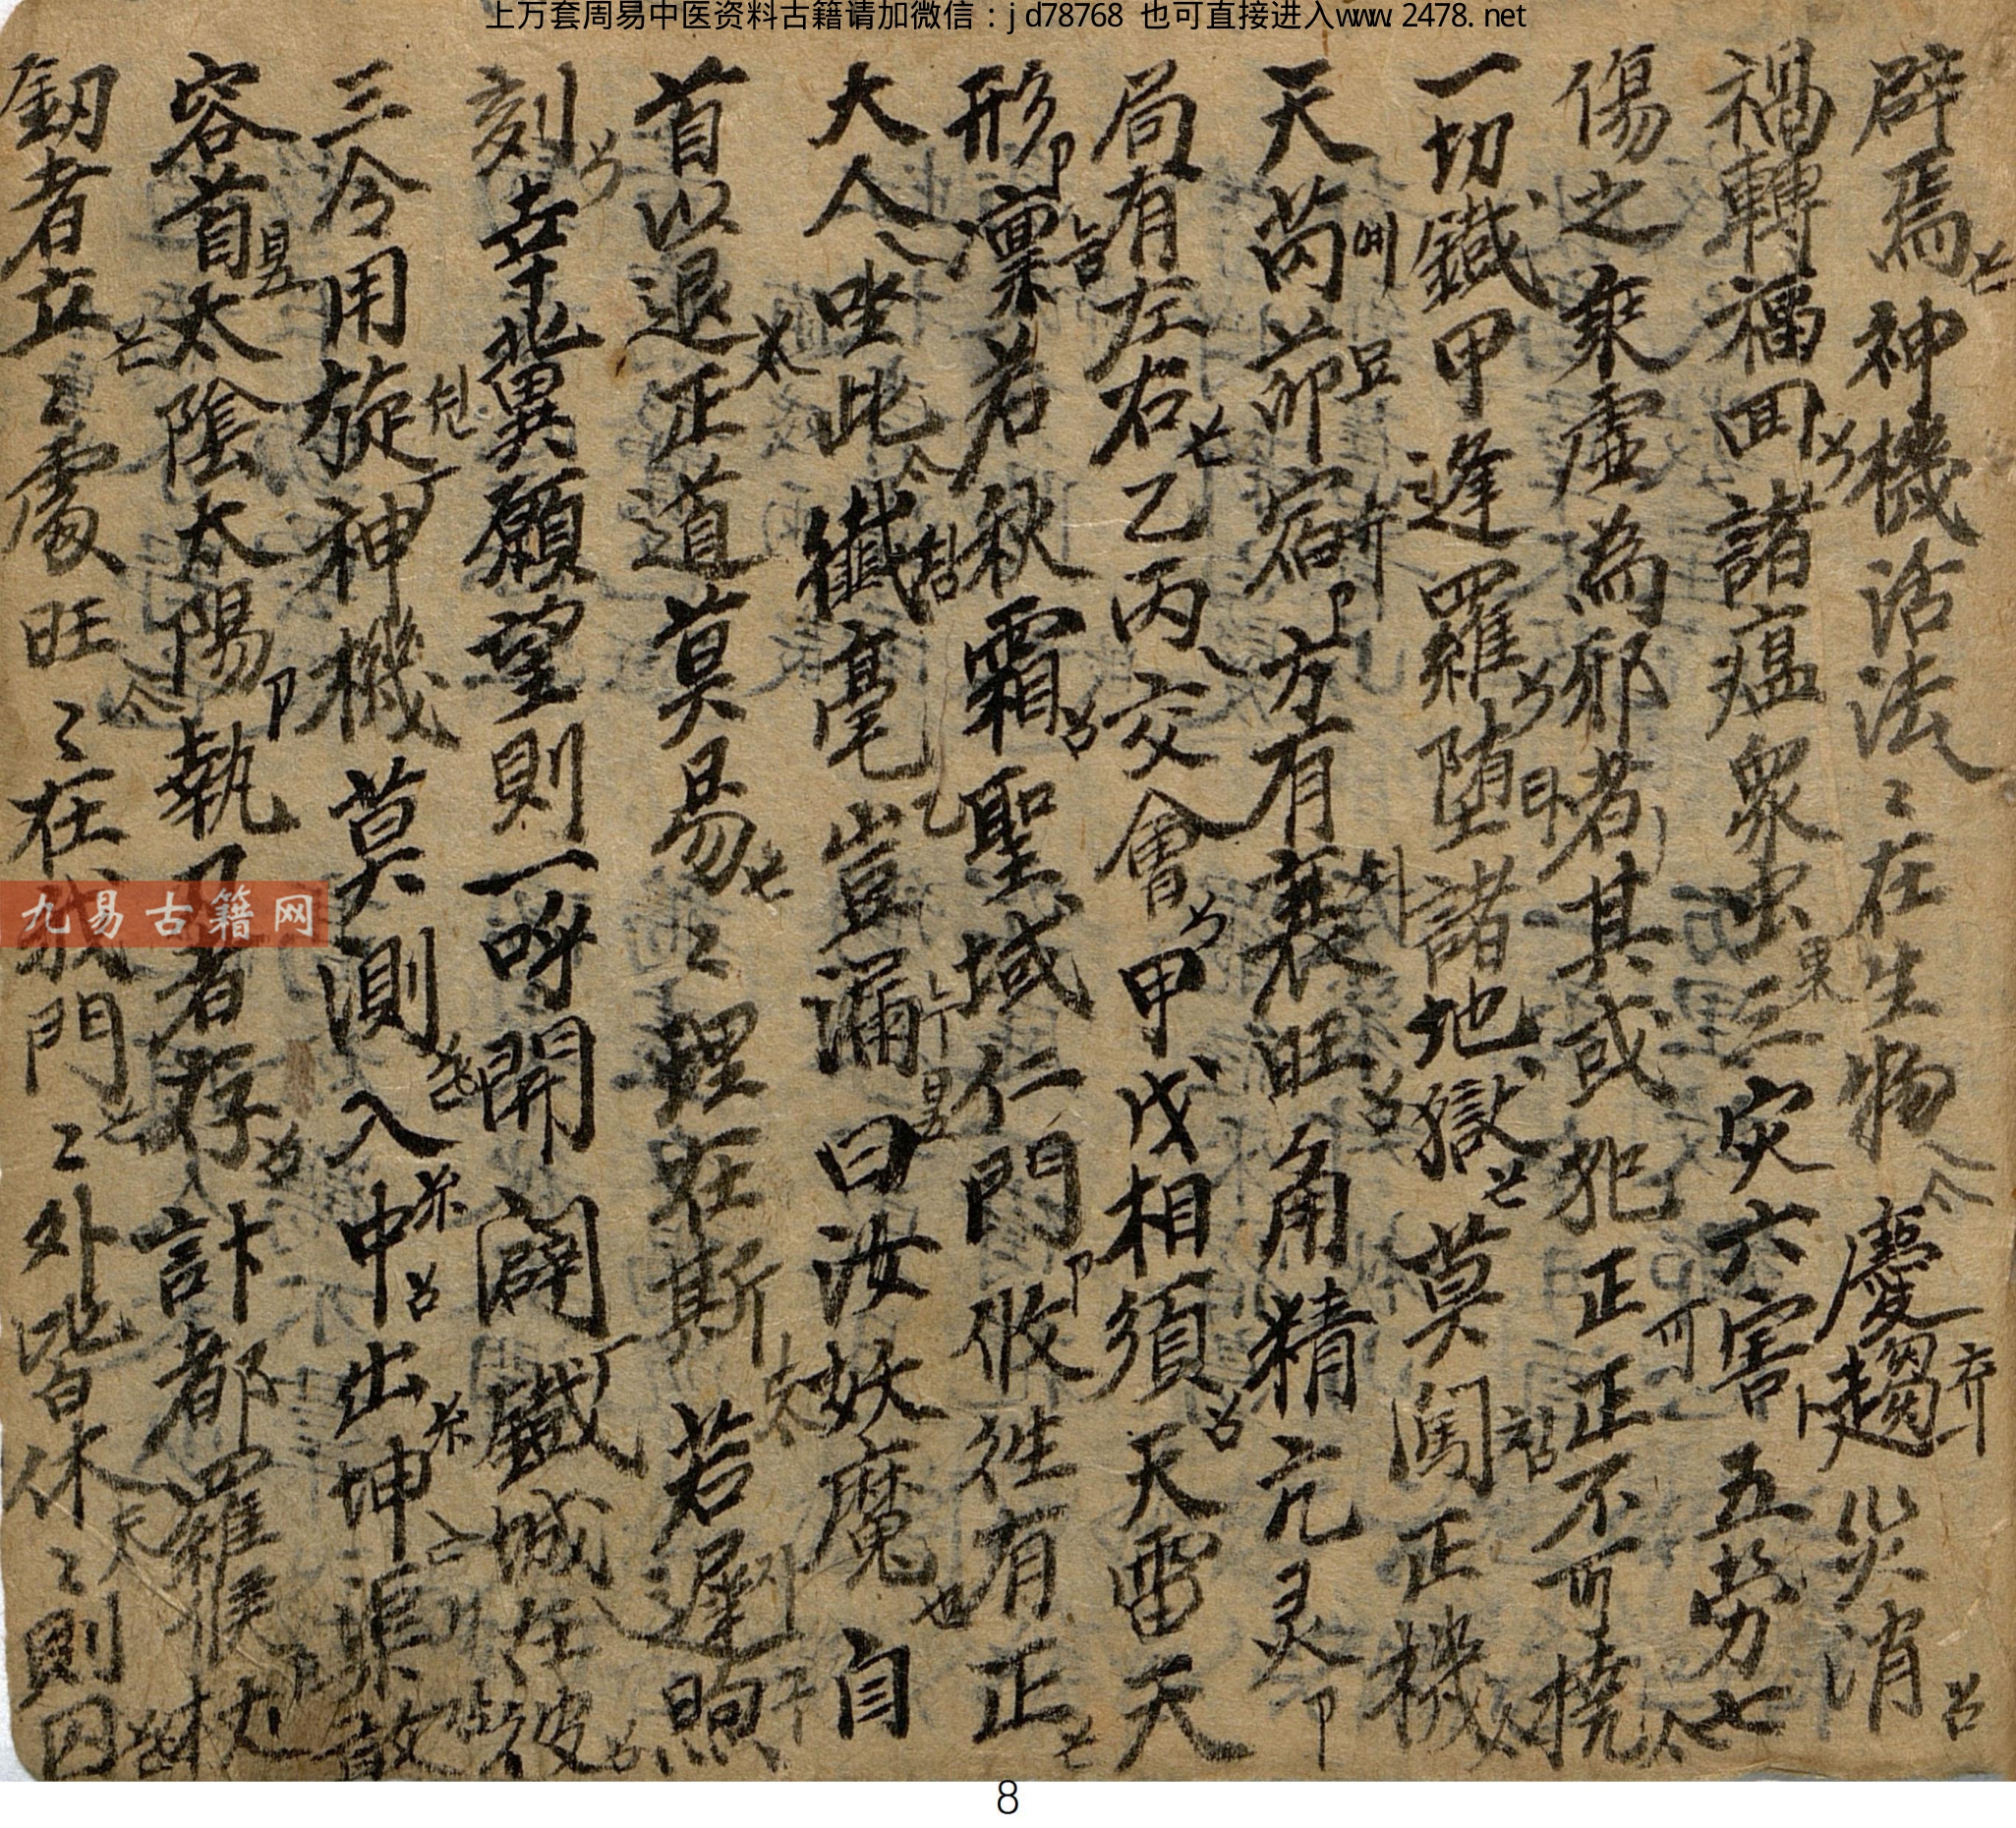 上万套周易中医资料古籍请加微信：jd78768 也可直接进入www.2478.net
辟焉神機活法〻在生物慶趨災消
禍轉福回諸瘟衆虫三灾六害五劳七
傷之乘虛為邪者其或犯正正不可撓
一切鐵甲逢羅堕諸地獄莫闖正機
天芮茆宿左有衰旺角精亢灵
局有左右乙丙交會甲戊相須天雷天
形凛若秋霜聖域仁門攸往有正
大人坐此纖毫豈漏曰汝妖魔自
首以退正道莫易〻理在斯若遲煦
刻幸冀願望則一呼開闢鐵城在彼
三令用旋神機莫測入中出坤聚散
容首太陰太陽執者存計都羅猴杖
釼者立〻處旺〻在我門〻外皆休〻則囚
九易古籍网
8